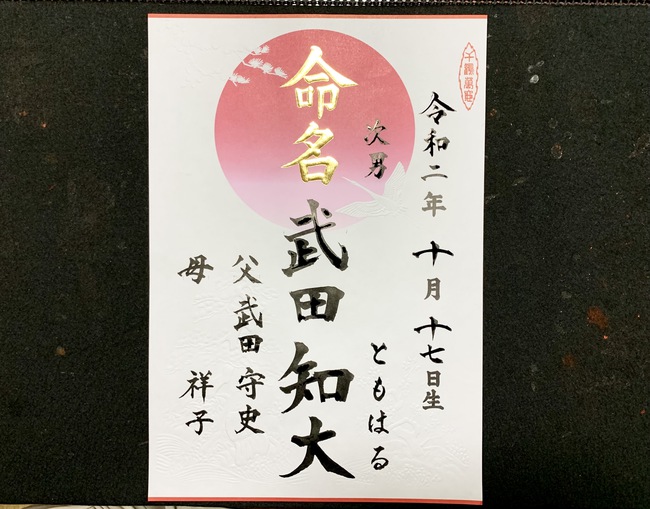 千客萬来
令和二年 十月 十七日生
次男 ともはる
命名 武田知大
父 武田守史
母 祥子